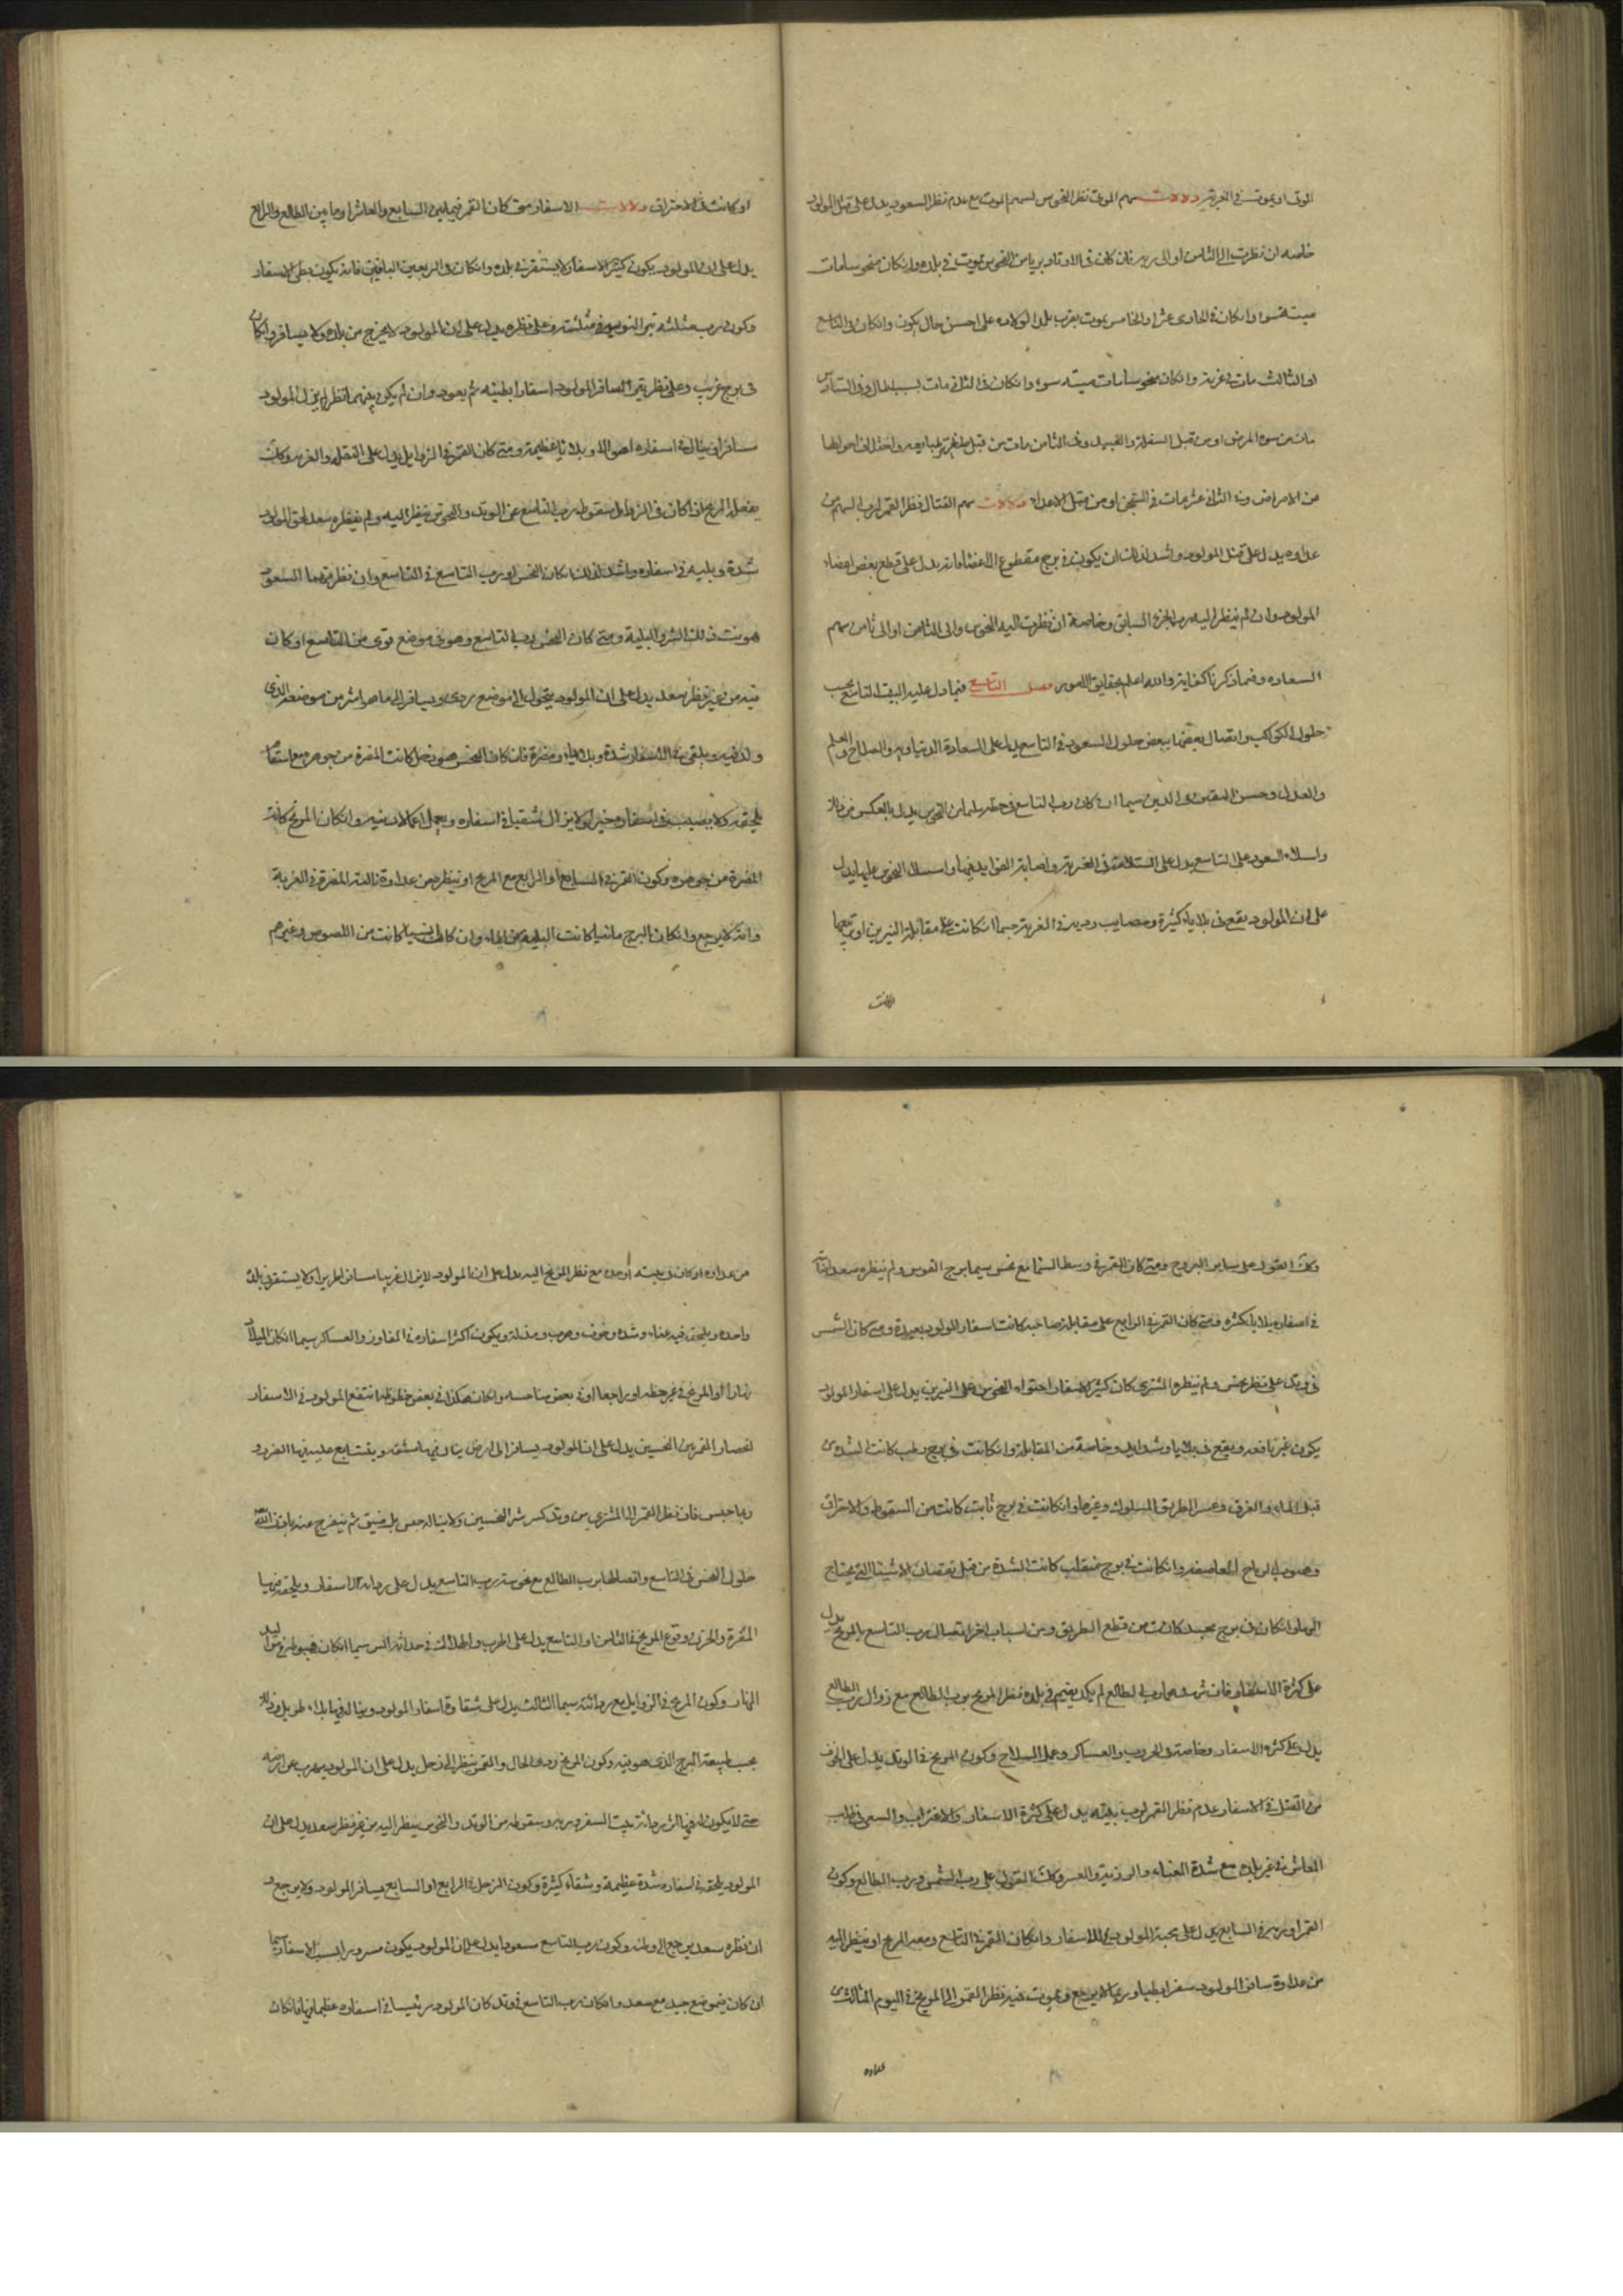 الموت او يموت في الغربة دلالات سهم الموت نظر النحوس لسهم الموت مع عدم نظر السعود يدل على قتل المولود
خاصه ان نظرت الى الثامن او الى ربه فان كان في الاوتاد بريا من النحوس يموت في بلده وان كان منحوسا مات
ميتة سوا وان كان في الحادى عشر او الخامس يموت بقرب بلد الولاده على احسن حال يكون وان كان في التاسع
او الثالث مات في غربة وان كان منحوسا مات ميتة سوء وان كان في الثانى مات بسبب المال وفى السادس
مات من سوء المرض او من قبل السفلة والعبيد وفى الثامن مات من قبل
من الامراض وفي الثانى عشر مات في السجن او من قبل الاعداء دلالات سهم القتال نظر القمر لرب السهم من
عداوه يدل على قتل المولود واشد لذلك ان يكون في برج مقطوع الاعضاء فانه يدل على قطع بعض اعضاء
المولود وان لم ينظر اليه رب الجزء السابق وخاصة ان نظرت اليه النحوس والى الثامن او الى ثامن سهم
السعاده وفيما ذكرنا كفاية والله اعلم بحقايق الامور فصل التاسع فيما دل عليه البيت التاسع بحسب
حلول الكواكب واتصال بعضها ببعض حلول السعود في التاسع يدل على السعادة الدنياوية والصلاح والعلم
والعدل وحسن اليقين في الدين سيما ان كان رب التاسع في حظه سليما من النحوس يدل بالعكس من ذلك
واستلاء السعود على التاسع يدل على السلامة في الغربة واصابة الفوايد فيها واستلاء النحوس عليها يدل
على ان المولود يقع في بلايا كثيرة ومصايب ردية في الغربة سيما ان كانت على مقابلة النيرين او تربيعها
او كانت في الاحتراق دلالات الاسفار متى كان القمر فيما بين السابع والعاشر او ما بين الطالع والرابع
يدل على ان المولود يكون كثير الاسفار ولا يستقر في بلده وان كان في الربعين الباقيين فانه يكون بطى الاسفار
وكون رب مثلثة نير النوبه في مثلثته وعلى نظره يدل على ان المولود لا يخرج من بلده ولا يسافر وان كان
في برج غريب وعلى نظر سافر المولود اسفارا بطيئه ثم يعود وان لم يكن بينهما نظر لم يزل المولود
مسافرا في اسفاره اهوالا وبلايا عظيمة ومتى كان القمر في الزوايل يدل على النقلة والغربه وكذلك
يفعل المريخ اذا كان في الزوايل سقوط رب التاسع عن الوتد والنحوس ينظر اليه ولم ينظره سعد لحق المولود
شدة وبليه في اسفاره واشد لذلك ان كان النحس او رب التاسع في التاسع وان نظرتهما السعود
هونت ذلك الشر والبلية ومتى كان النحس رب التاسع وهو في موضع قوى من التاسع او كان
فيه من غير نظر سعد يدل على ان المولود يتحول الى موضع ردى ويسافر الى ما هو اشر من موضعه الذى
ولد فيه ويلقى في الاسفار شدة وبلايا ومضرة فان كان النحس هو زحل كانت المضرة من جوهره مع
يلحقه ولا يصيب في اسفاره خيرا ولا يزال شقيا في اسفاره ويعمل اعمالا دنيه وان كان المريخ كانت
المضرة من جوهره وكون القمر في السابع او الرابع مع المريخ او ينظره من عداوة نالته المضرة في الغربة
وانه لا يرجع وان كان البرج مائيا كانت البلية من الماء وان كان انسيا كانت من اللصوص وغيرهم
وكذلك القول على ساير البروج ومتى كان القمر في وسط السما مع نحس سيما برج القوس ولم ينظره سعد نالته
في اسفاره بلايا كثيره ومتى كان القمر في الرابع على مقابلة صاحبه كانت اسفار المولود بعيدة ومتى كان الشمس
في وتد على نظر نحس ولم ينظره المشترى كان كثير الاسفار احتواء النحوس على النيرين يدل على اسفار المولود
يكون غير نافعه ويقع في بلايا وشدايد وخاصة من المقابلة وان كانت في برج رطب كانت الشده من
قبل الماء والغرق وعسر الطريق المسلوك وغيرها وان كانت في برج ثابت كانت من السقوط والاحتراق
وهبوب الرياح العاصفه وان كانت في برج منقلب كانت الشدة من قبل نقصان الاشياء التى يحتاج
اليها وان كان في برج مجسد كانت من قطع الطريق ومن اسباب اخر اتصال رب التاسع بالمريخ يدل
على كثرة الاسفار فان رب الطالع لم يكد يقيم في بلده نظر المريخ برب الطالع مع زوال رب الطالع
يدل على كثره الاسفار وخاصة في الحروب والعساكر وحمل السلاح وكون المريخ في الوتد يدل على الخوف
من القتل في الاسفار عدم نظر القمر لرب بيته يدل على كثرة الاسفار والاغتراب والسعى في طلب
المعاش في غير بلده مع شدة العناء والرزية والعسر وكذلك القول على رب الشمس ورب الطالع وكون
القمر او ربه في السابع يدل على محبة المولود في الاسفار وان كان القمر في التاسع ومعه المريخ او ينظر اليه
من عداوة سافر المولود سفرا بطيا وربما لا يرجع ويموت فيه نظر القمر الى المريخ في اليوم الثالث من
عداوه
من عداوه او كان في بيته او حده مع نظر المريخ اليه يدل على ان المولود لا يزال غريبا مسافرا ولا يستقر في بلدة
واحده ويلحقه فيه عناء وشده وخوف وحرب ومذلة ويكون اكثر اسفاره في المفاوز والعساكر سيما ان كان الميلاد
نهارا والمريخ في غير حظه او راجعا او في بعض مناحسه وان كان هكذا في بعض حظوظه انتفع المولود في الاسفار
انحصار القمر بين النحسين يدل على ان المولود يسافر الى ارض ينال فيها مشقه ويتتابع عليه فيها الضرر و
ربما حبس فان نظر القمر الى المشترى من وتد كسر شر النحسين ولا يناله حبس بل ضيق ثم ينفرج عنه باذن الله
حلول النحس في التاسع واتصالها برب الطالع مع نحوسة رب التاسع يدل على رداءة الاسفار ويلحقه فيها
المضرة والحزن وقوع المريخ في الثامن او التاسع يدل على الحرب والهلاك في حداثة السن سيما ان كان هبوطه في مواليد
النهار وكون المريخ في الزوايل مع ردائته سيما الثالث يدل على شقاوة اسفار المولود ويناله فيها بلاء طويل وذلك
بحسب طبيعة البرج الذى هو فيه وكون المريخ ردى الحال والقمر ينظر الى زحل يدل على ان المولود يهرب عن ارضه
حتى لا يكون له فيها اثر رداءة بيت السفر وربه وسقوطه من الوتد والنحوس ينظر اليه من غير نظر سعد يدل على ان
المولود يلحقه في اسفاره شدة عظيمة وشقاء كثيرة وكون الزحل في الرابع او السابع يسافر المولود ولا يرجع و
ان نظره سعد يرجع الى وطنه وكون رب التاسع مسعودا يدل على ان المولود يكون مسرورا بسبب الاسفار سيما
ان كان في موضع جيد مع سعد وان كان رب التاسع في وتد كان المولود رئيسا في اسفاره عظيما فان كان